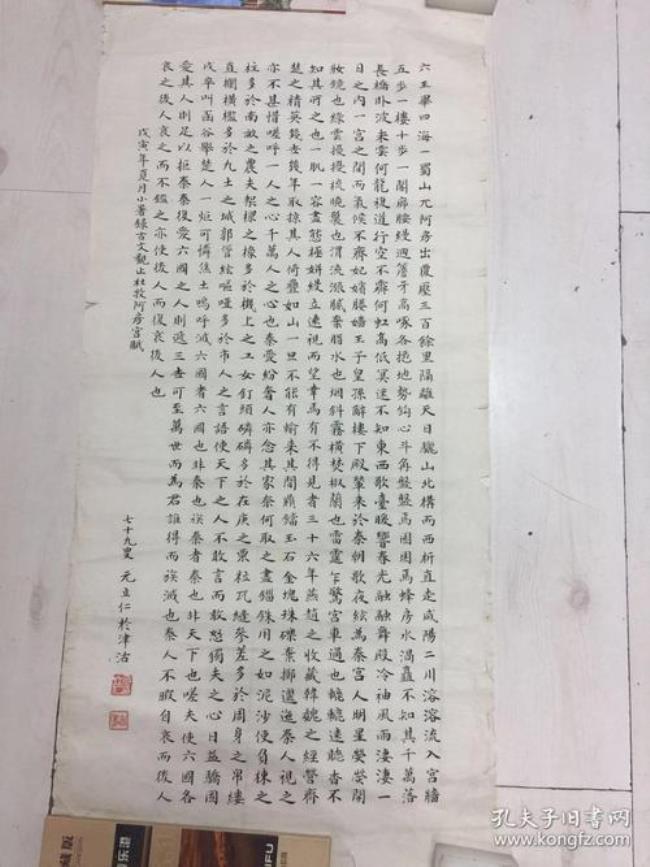 六王畢四海一蜀山兀阿房出覆壓三百餘里隔離天日驪山北構而西折直走咸陽二川溶溶流入宮牆
五步一樓十步一閣廊腰縵迴簷牙高啄各抱地勢鈎心斗角盤盤焉囷囷焉蜂房水渦矗不知其千萬落
長橋卧波未雲何龍複道行空不霽何虹高低冥迷不知東西歌臺暖響春光融融舞殿冷袖風雨淒淒一
日之內一宮之間而氣候不齊妃嬪媵嬙王子皇孫辭樓下殿輦來於秦朝歌夜絃為秦宮人明星熒熒開
妝鏡也綠雲擾擾梳曉鬟也渭流漲膩棄脂水也烟斜霧橫焚椒蘭也雷霆乍驚宮車過也轆轆遠聽杳不
知其所之也一肌一容盡態極妍縵立遠視而望幸焉有不得見者三十六年燕趙之收藏韓魏之經營齊
楚之精英幾世幾年取掠其人倚疊如山一旦不能有輸來其間鼎鐺玉石金塊珠礫棄擲邐迤秦人視之
亦不甚惜嗟呼一人之心千萬人之心也秦愛紛奢人亦念其家奈何取之盡錙銖用之如泥沙使負棟之
柱多於南畝之農夫架樑之椽多於機上之工女釘頭磷磷多於在庾之粟粒瓦縫參差多於周身之帛縷
直欄橫檻多於九土之城郭管絃嘔啞多於市人之言語使天下之人不敢言而敢怒獨夫之心日益驕固
戍卒叫函谷舉楚人一炬可憐焦土嗚呼滅六國者六國也非秦也族秦者秦也非天下也嗟夫使六國各
愛其人則足以拒秦秦復愛六國之人則遞三世可至萬世而為君誰得而族滅也秦人不暇自哀而後人
哀之後人哀之而不鑑之亦使後人而復哀後人也
戊寅年夏月小暑錄古文觀止杜牧阿房宮賦
七十九叟 元立仁於津沽
孔夫子旧书网
www.kongfz.com
藏版